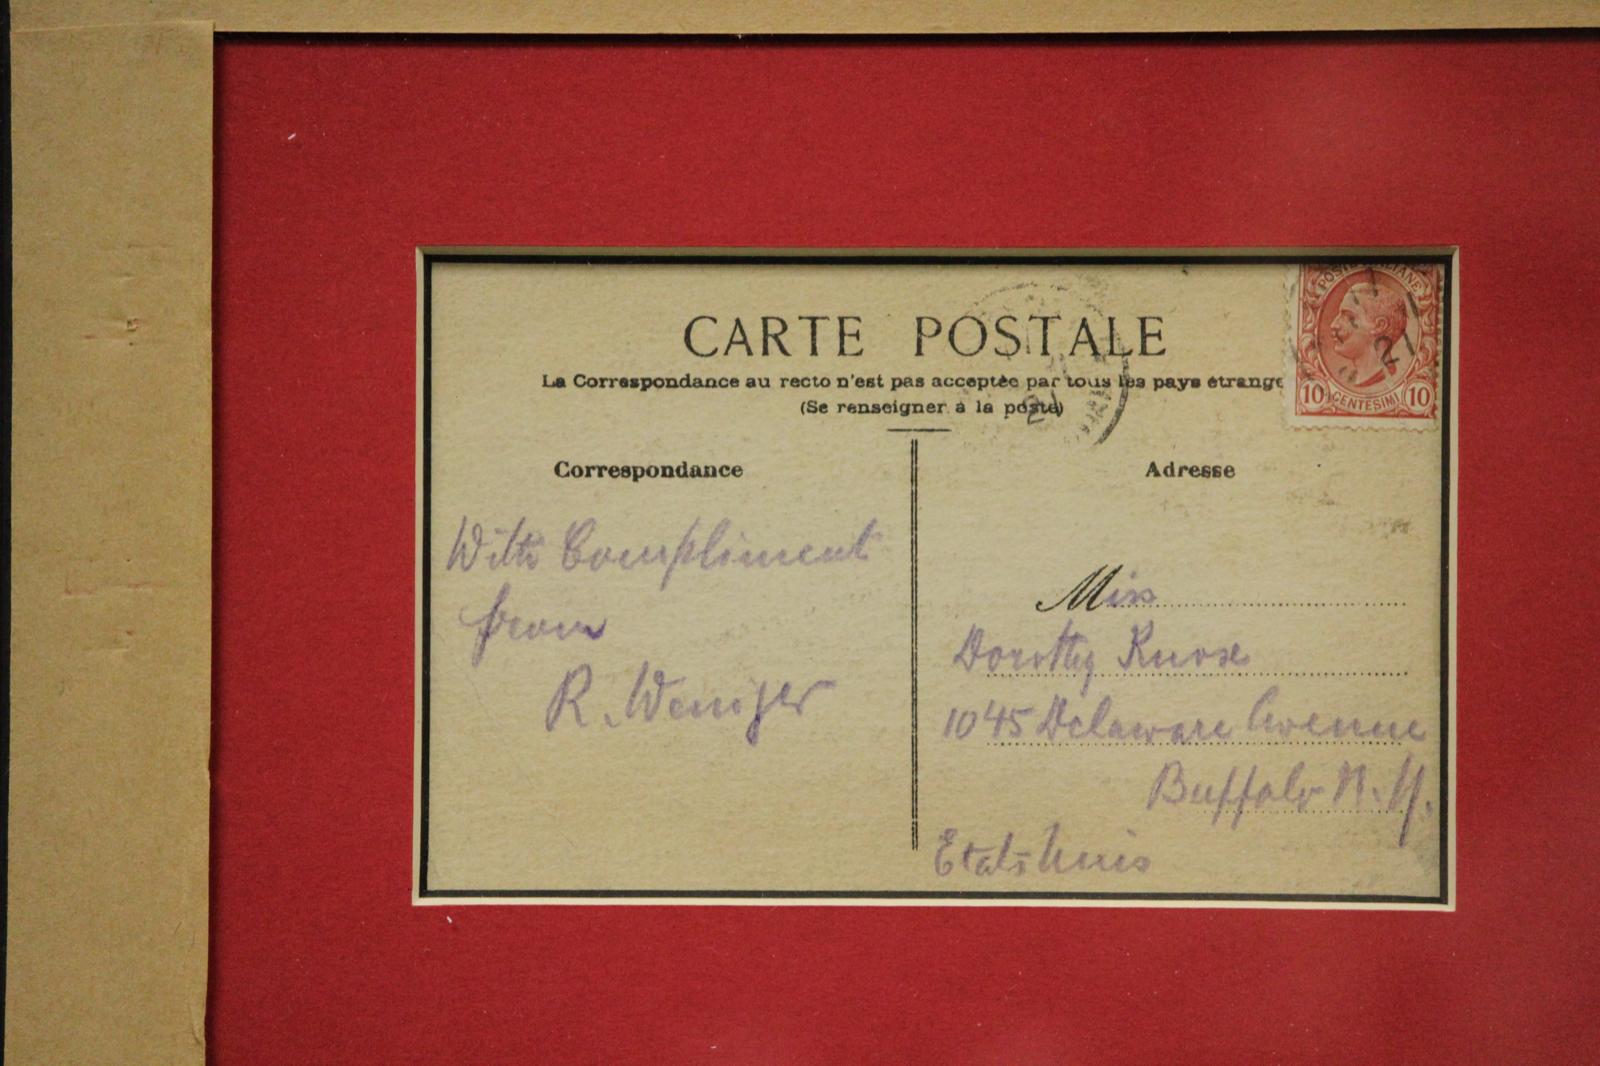 CARTE POSTALE
La Correspondance au recto n'est pas acceptée par tous les pays étrange
(Se renseigner à la poste)
POSTE ITALIANE
21
10 CENTESIMI 10
21
Correspondance
Adresse
With Compliment
from
R. Wenger
Miss
Dorothy Knox
1045 Delaware Avenue
Buffalo N. Y.
Etats Unis